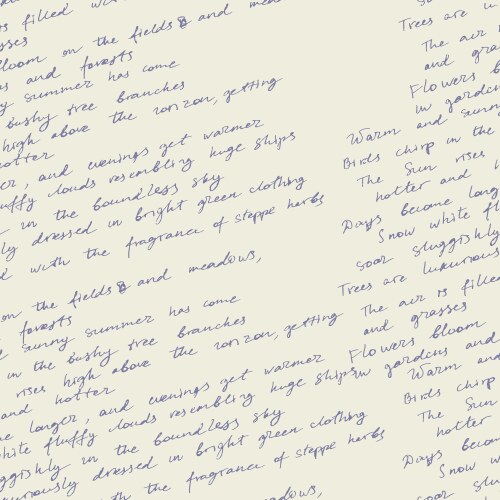 s filled wi
sses
loom on the fields & and mea
s and forests
y summer has come
bushy tree branches
high above the horizon, getting
hotter
er, and evenings get warmer
uffy clouds resembling huge ships
in the boundless sky
ly dressed in bright green clothing
d with the fragrance of steppe herbs
on the fields & and meadows,
forests
sunny summer has come
in the bushy tree branches
rises high above the horizon, getting
and hotter
e longer, and evenings get warmer
hite fluffy clouds resembling huge ships
ggishly in the boundless sky
uriously dressed in bright green clothing
th the fragrance of steppe herbs
meadows,
Trees are
The air
and gras
Flowers b
in gardens
Warm and sunn
Birds chirp in the
The Sun rises
hotter and
Days become long
Snow white fl
soar sluggishly
Trees are luxurious
The air is filled
and grasses
Flowers bloom
in gardens and
Warm and
Birds chirp
The Sun
hotter
Days becom
Snow w
soar